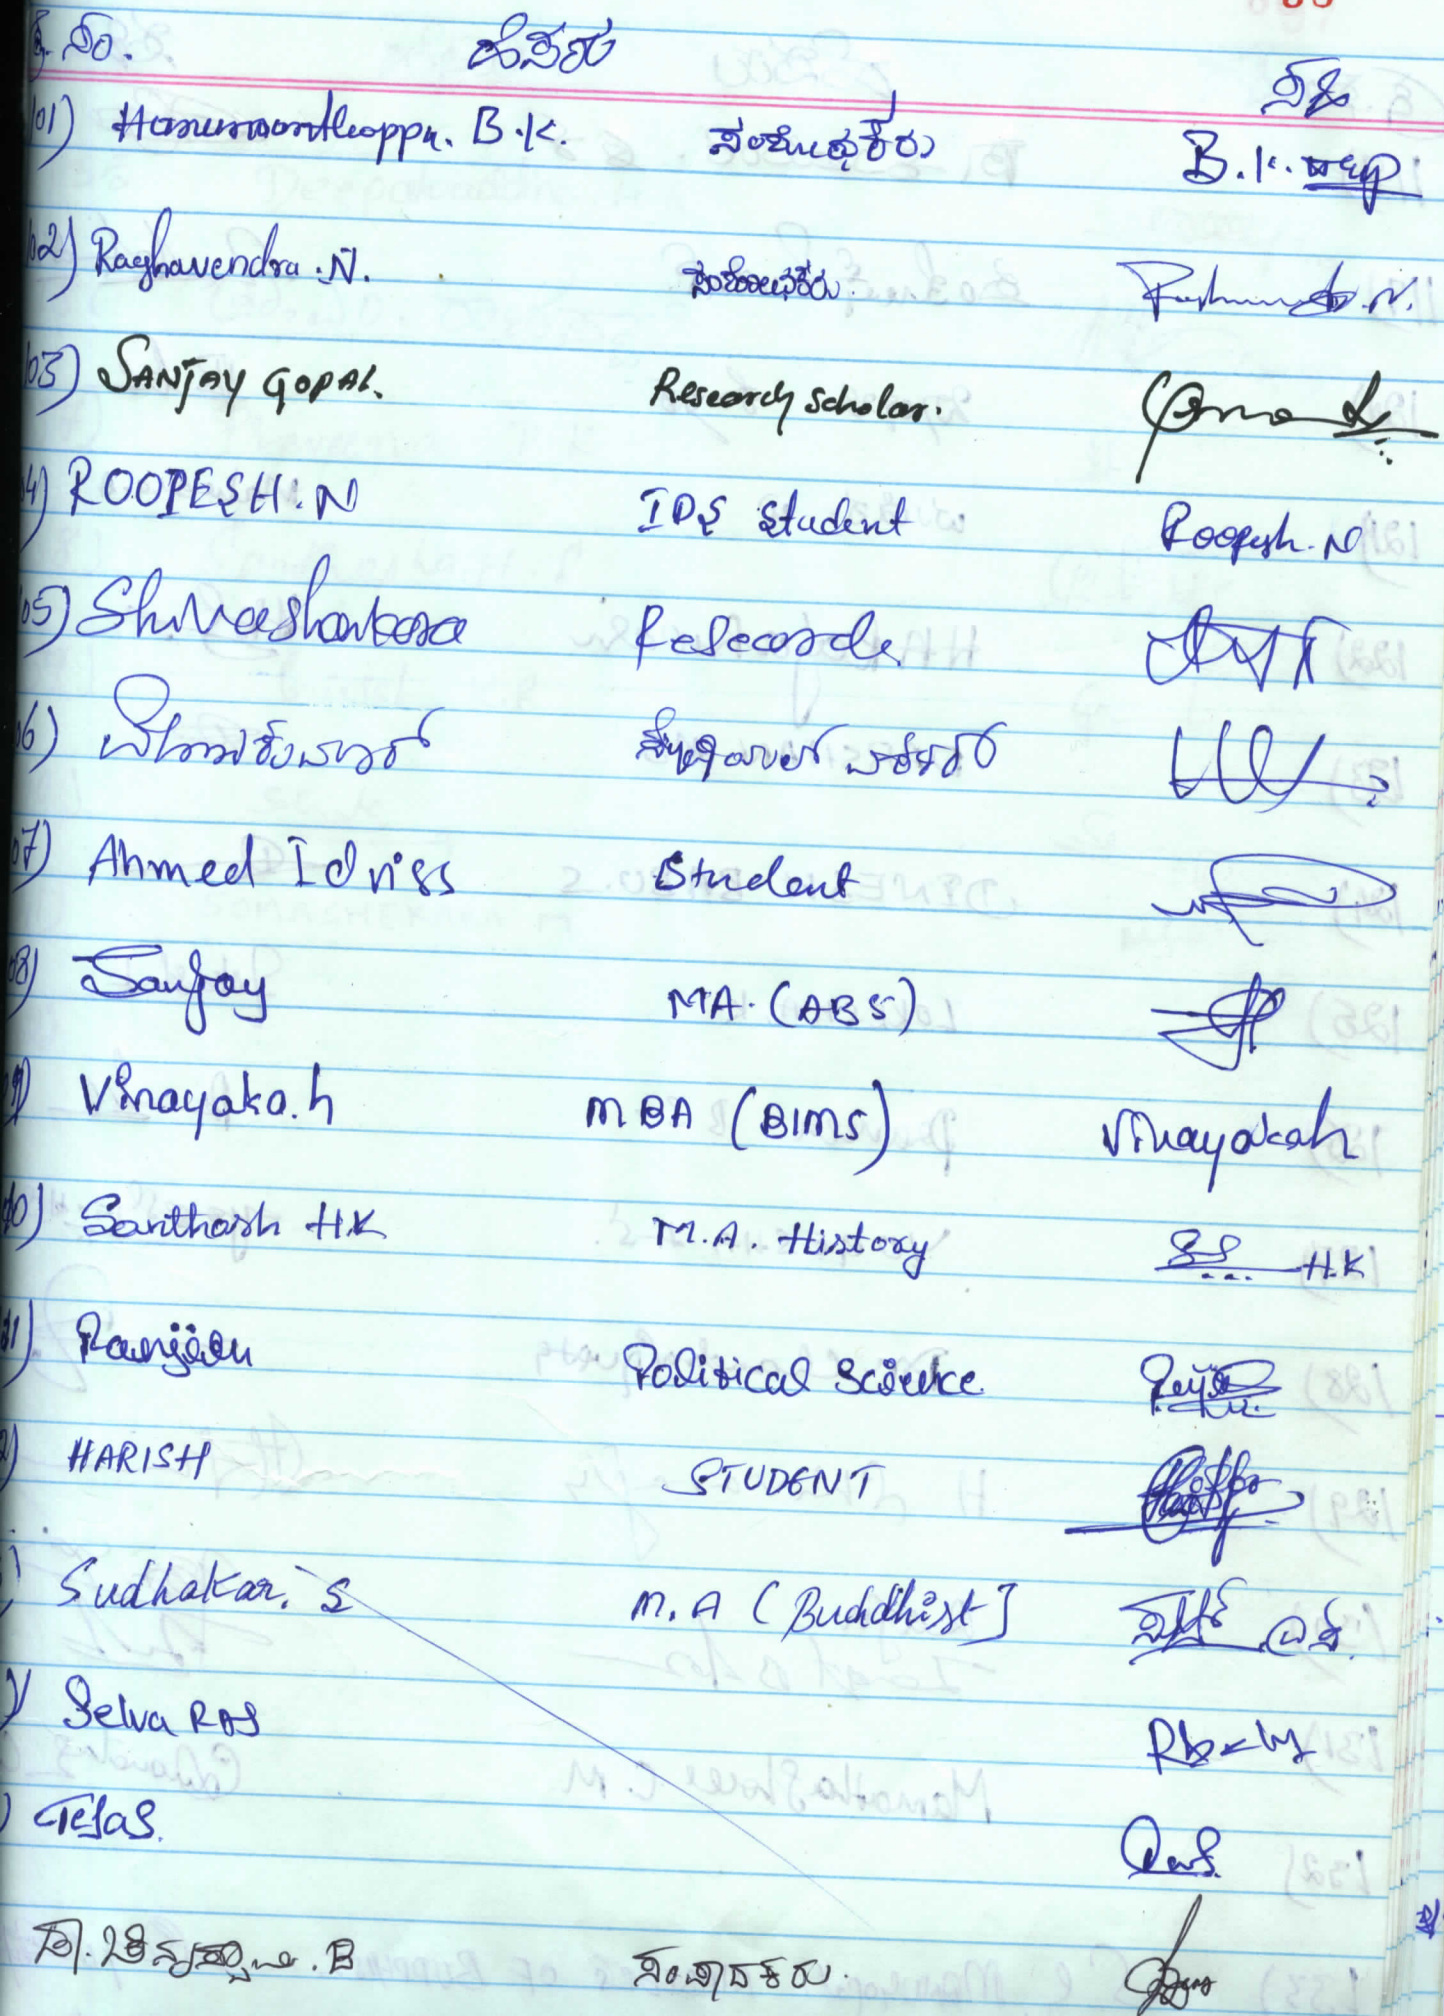 ಕ್ರ.ಸಂ. ಹೆಸರು ಸಹಿ
01) Hanumanthappa. B.K. ಸಂಶೋಧಕರು B.K.
02) Raghavendra .N. ಸಂಶೋಧಕರು
03) SANJAY GOPAL. Research scholar.
04) ROOPESH.N IDS Student Roopesh.N
05) Shivashankara
06)
07) Ahmed Idriss Student
08) Sanjay MA. (ABS)
09) Vinayaka.h MBA (BIMS) Vinayakah
10) Santhosh H.K M.A. History H.K
11) Ranjan Political Science
12) HARISH STUDENT
Sudhakar. S M.A (Buddhist]
Selva RAJ
Tejas.
ಡಾ. .B ಸಂಪಾದಕರು.